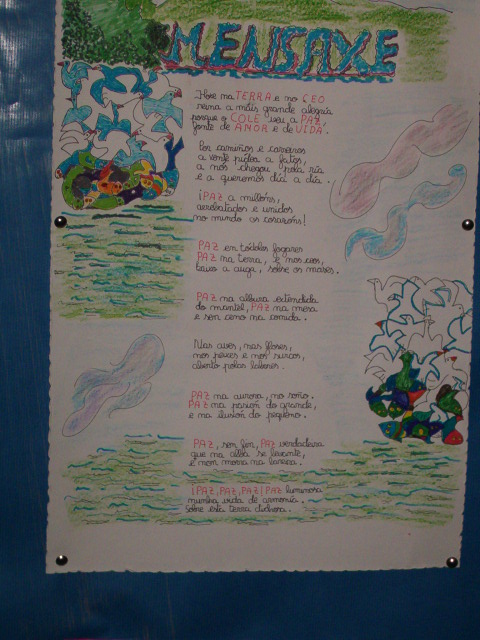 MENSAXE
Hoxe na TERRA e no CEO
reina a máis grande alegría
porque o COLE veu a PAZ,
fonte de AMOR e de VIDA.
Por camiños e carreiros
a xente pídea a fatos,
a nós chegou pola ría
e a queremos día a día.
¡PAZ a millóns,
arrebatados e unidos
no mundo os corazóns!
PAZ en tódolos fogares
PAZ na terra, e nos ceos,
baixo a auga, sobre os mares.
PAZ na albura estendida
do mantel, PAZ na mesa
e sen ceno na comida.
Nas aves, nas flores,
nos peixes e nos surcos,
alento polos labores.
PAZ na aurora, no soño.
PAZ na paisón do grande,
e na ilusión do pequeno.
PAZ, sen fin, PAZ verdadeira
que na alba se levante,
e non morra na lareira.
¡PAZ, PAZ, PAZ! PAZ luminosa
nunha vida de armonía
sobre esta terra dichosa.